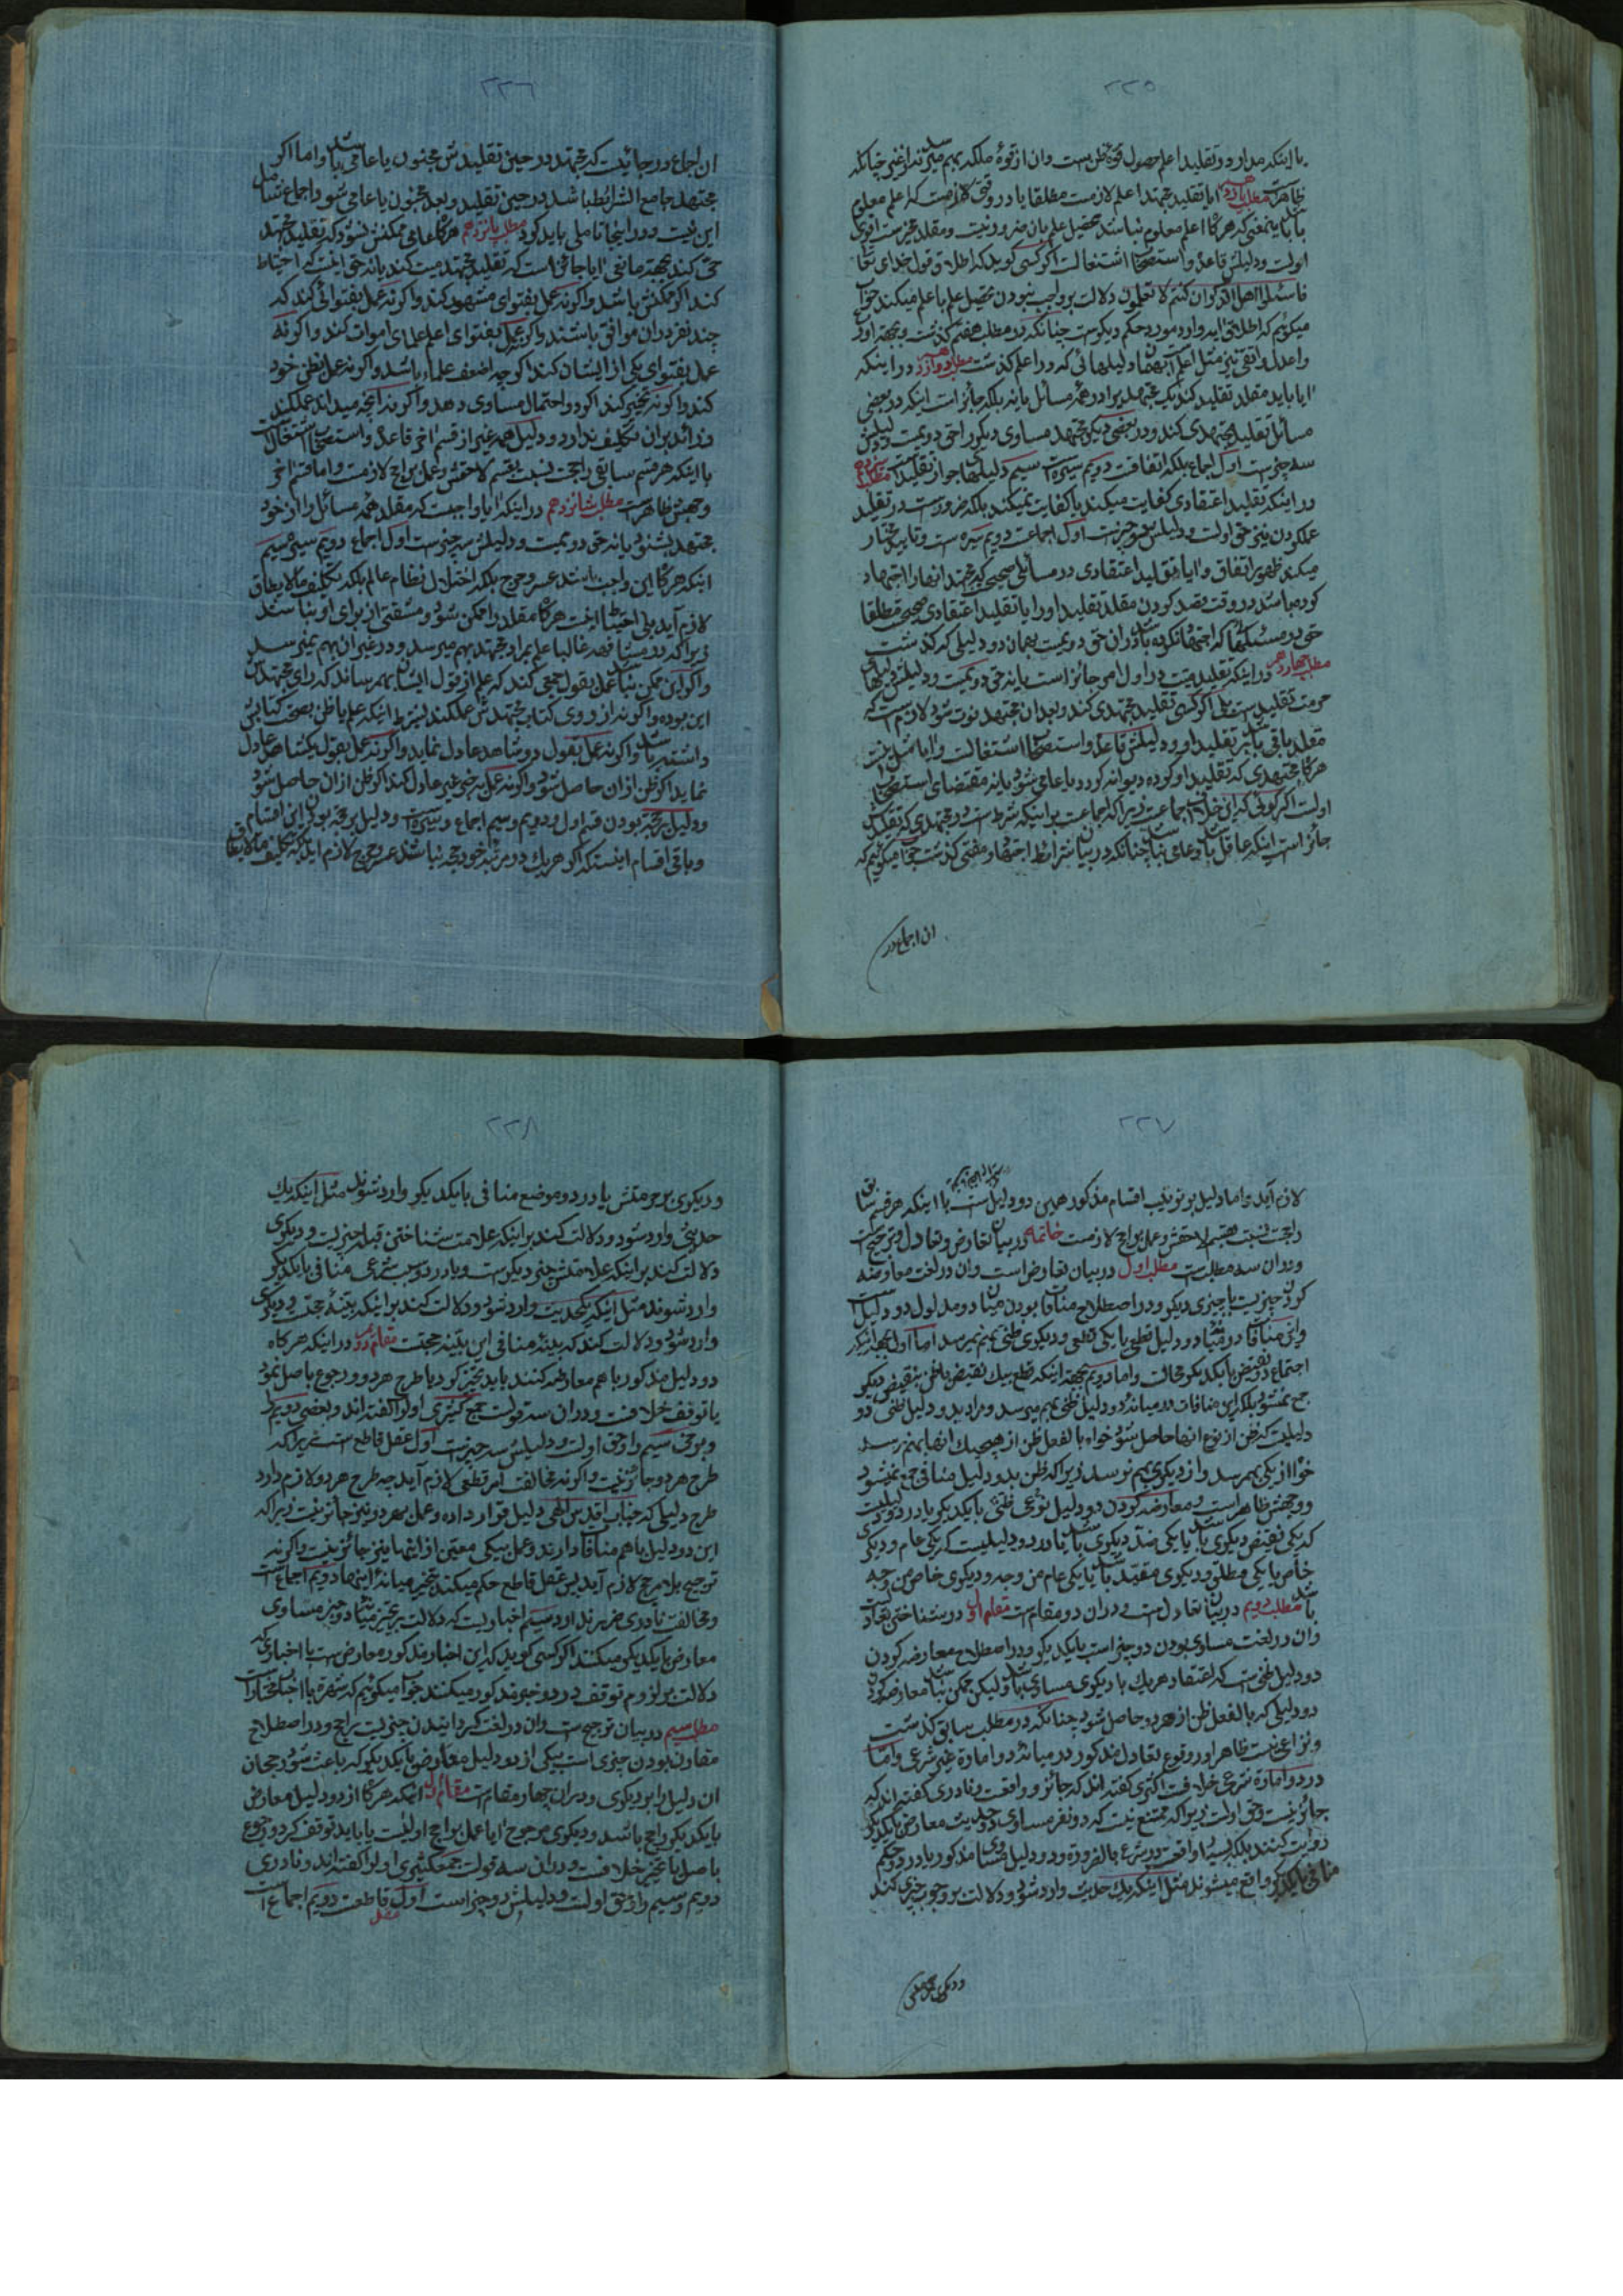 ٢٣٥
با اینکه مدار در تقلید اعلم حصول قوة ظن است وان از قوۀ ملکه بهم میرسد نه از غیر چنانکه
ظاهر است مطلب یازدهم ایا تقلید مجتهد اعلم لازمست مطلقا یا در وقتی لازمست که اعلم معلوم
باشد باینمعنی که هرگاه اعلم معلوم نباشد تحصیل علم بان ضرور نیست و مقلد مخیر است اقوی
اولست و دلیلش قاعده و استصحاب اشتغالست اگر کسی گوید که اطلاق قول خدای تعالی
فاسئلوا اهل الذکر ان کنتم لا تعلمون دلالت بر واجب نبودن تحصیل علم باعلم میکند جواب
میگویم که اطلاق ایه وارد مورد حکم دیگر ست چنانکه در مطلب هفتم گذشت و بجهة اورع
واعدل واتقی نیز مثل اعلم است بهمان دلیلهائی که در اعلم گذشت مطلب دوازدهم در اینکه
ایا باید مقلد تقلید کند یک مجتهد را در همۀ مسائل یا نه بلکه جائز است اینکه در بعضی
مسائل تقلید مجتهدی کند و در بعضی دیگر مجتهد مساوی دیگر را حق دویمست و دلیلش
سه چیز ست اول اجماع بلکه اتفاقست دویم سیره است سیم دلیلهای جواز تقلید است مطلب سیزدهم
در اینکه تقلید اعتقادی کفایت میکند یا کفایت نمیکند بلکه ضرور ست در تقلید
عمل کردن نیز حق اولست و دلیلش دو چیز ست اول اجماعست دویم سیره ست و تایید مختار
میکند ظهور اتفاق و ایا تقلید اعتقادی در مسائلی صحیح که مجتهد انها را اجتهاد
کرده باشد در وقت قصد کردن مقلد تقلید او را یا تقلید اعتقادی صحیح مطلقا
حتی در مسئلهائی که اجتهاد نکرده باشد در ان حق دویمست بهمان دو دلیلی که گذشت
مطلب چهاردهم در اینکه تقلید میت در اول امر جائز است یا نه حق دویمست و دلیلش دلیلهای
حرمت تقلیدست بلی اگر کسی تقلید مجتهدی کند و بعد ان مجتهد فوت شود لازم ست که
مقلد باقی باشد بر تقلید او و دلیلش قاعده و استصحاب اشتغالست و ایا مثل اینست
هرگاه مجتهدی که تقلید او کرده دیوانه گردد یا عامی شود یا نه مقتضای استصحاب
اولست اگر گوئی که این خلاف اجماعست زیرا که اجماعست بر اینکه شرط ست در مجتهدی که تقلیدش
جائز است اینکه عاقل باشد و عامی نباشد چنانکه در بیان شرائط اجتهاد و مفتی گذشت جواب میگوئیم که
ان اجماع در
٢٣٦
ان اجماع در جائیست که مجتهد در حین تقلیدش مجنون یا عامی باشد واما اگر
مجتهد جامع الشرائط باشد در حین تقلید و بعد مجنون یا عامی شود اجماع شامل
این نیست و در اینجا تاملی باید کرد مطلب پانزدهم هرگاه عامی ممکنش نشود که تقلید مجتهد
حی کند بجهة مانعی ایا جائز است که تقلید مجتهد میت کند یا نه حق اینست که احتیاط
کند اگر ممکنش باشد واگر نه عمل بفتوای مشهور کند واگر نه عمل بفتوائی کند که
چند نفر در ان موافق باشند واگر نه عمل بفتوای اعلم علمای اموات کند واگر نه
عمل بفتوای یکی از ایشان کند اگر چه اضعف علماء باشد واگر نه عمل بظن خود
کند واگر نه تخییر کند اگر دو احتمال مساوی دهد واگر نه آنچه میداند عمل کند
و زائد بران تکلیف ندارد و دلیل همه غیر از قسم اخر قاعده و استصحاب اشتغالست
با اینکه هر قسم سابقی راجحست نسبت بقسم لاحقش و عمل براجح لازمست و اما قسم اخر
وجهش ظاهر ست مطلب شانزدهم در اینکه ایا واجبست که مقلد همۀ مسائل را از خود
مجتهد بشنود یا نه حق دویمست و دلیلش سه چیز ست اول اجماع دویم سیره سیم
اینکه هرگاه این واجب باشد عسر و حرج بلکه اختلال نظام عالم بلکه تکلیف ما لا یطاق
لازم آید بلی احتیاط اینست هرگاه مقلد را ممکن شود و مشقتی از برای او نباشد
زیرا که در مشافهه غالبا علم بمراد مجتهد بهم میرسد و در غیر ان بهم نمیرسد
واگر این ممکن نباشد عمل بقول جمعی کند که علم از قول ایشان بهم رساند که رای مجتهدش
این بوده واگر نه از روی کتاب مجتهدش عمل کند بشرط اینکه علم یا ظن بصحت کتابش
داشته باشد واگر نه عمل بقول دو شاهد عادل نماید واگر نه عمل بقول یکشاهد عادل
نماید اگر ظن از ان حاصل شود واگر نه عمل بخبر غیر عادل کند اگر ظن ازان حاصل شود
و دلیل بر حجة بودن قسم اول و دویم و سیم اجماع و سیره ست و دلیل بر حجة بودن این اقسام
و باقی اقسام اینستکه اگر هر یک در مرتبۀ خود حجة نباشد عسر و حرج لازم اید بلکه تکلیف ما لا یطاق
٢٣٧
لازم آید و اما دلیل بر ترتیب اقسام مذکور همین دو دلیل ست با اینکه هر قسم سابق
راجحست نسبت بقسم لاحقش و عمل براجح لازمست خاتمه در بیان تعارض و تعادل و ترجیح است
و دران سه مطلب ست مطلب اول در بیان تعارض است وان در لغت معاوضه
کردن چیزیست با چیزی دیگر و در اصطلاح منافات بودن میان دو مدلول دو دلیل است
واین منافات در میان دو دلیل قطعی یا یکی قطعی و دیگری ظنی بهم نمیرسد اما اول بجهة اینکه
اجتماع نقیضین با یکدیگر محالست واما دویم بجهة اینکه قطع بیک نقیض با ظن بنقیض دیگر
جمع نمیشود بلکه این منافات در میانۀ دو دلیل ظنی بهم میرسد و مراد بدو دلیل ظنی دو
دلیلیست که ظن از نوع انها حاصل شود خواه بالفعل ظن از هیچیک انها بهم نرسد
خواه از یکی بهم رسد و از دیگری بهم نرسد زیرا که ظن بدو دلیل منافی جمع نمیشود
و وجهش ظاهر است و معارضه کردن دو دلیل نوعی ظنی با یکدیگر یا در دو دلیلیست
که یکی نقیض دیگری باشد یا یکی ضد دیگری باشد یا در دو دلیلیست که یکی عام و دیگری
خاص یا یکی مطلق و دیگری مقید باشد یا یکی عام من وجه و دیگری خاص من وجه
باشد مطلب دویم در بیان تعادل ست و دران دو مقام ست مقام اول در شناختن تعادلست
وان در لغت مساوی بودن دو چیز است با یکدیگر و در اصطلاح معارضه کردن
دو دلیل ظنی ست که اعتقاد هر یک با دیگری مساوی باشد ولیکن ممکن نباشد معارضه کردن
دو دلیلی که بالفعل ظن از هر دو حاصل شود چنانکه در مطلب سابق گذشت
و نزاعی نیست ظاهرا در وقوع تعادل مذکور در میانۀ دو امارۀ غیر شرعی واما
در دو امارۀ شرعی خلافست اکثری گفته اند که جائز و واقعست و نادری گفته اند که
جائز نیست و حق اولست زیرا که ممتنع نیست که دو نفر مساوی دو حدیث معارض با یکدیگر
روایت کنند بلکه بسیار واقعست در شرع بالضروره و دو دلیل مساوی مذکور یا در دو حکم
منافی با یکدیگر واقع میشوند مثل اینکه یک حدیث وارد شود و دلالت بر وجوب چیزی کند
و دیگری بر حرمتش
٢٣٨
و دیگری بر حرمتش یا در دو موضع منافی با یکدیگر وارد شوند مثل اینکه یک
حدیثی وارد شود و دلالت کند بر اینکه علامت شناختن قبله چیزیست و دیگری
دلالت کند بر اینکه علامتش چیز دیگر ست و یا در دو سبب شرعی منافی با یکدیگر
وارد شوند مثل اینکه یکحدیث وارد شود و دلالت کند بر اینکه بینۀ حجتست و دیگری
وارد شود و دلالت کند که بینۀ منافی این بینه حجتست مقام دویم در اینکه هرگاه
دو دلیل مذکور باهم معارضه کنند باید تخییر کرد یا طرح هر دو و رجوع باصل نمود
یا توقف خلافست و دران سه قولست جمع کثیری اول را گفته اند و بعضی دویم را
و برخی سیم را و حق اولست و دلیلش سه چیز ست اول عقل قاطع است زیرا که
طرح هر دو جائز نیست واگر نه مخالفت امر قطعی لازم آید چه طرح هر دو لازم دارد
طرح دلیلی که جناب اقدس الهی دلیل قرار داده و عمل بهر دو نیز جائز نیست زیرا که
این دو دلیل باهم منافات دارند و عمل بیکی معین از اینها نیز جائز نیست واگر نه
ترجیح بلا مرجح لازم آید پس عقل قاطع حکم میکند بتخییر میانۀ اینها دویم اجماع است
و مخالفت نادری ضرر ندارد سیم اخباریست که دلالت بر تخییر میان دو خبر مساوی
معارض با یکدیگر میکنند اگر کسی گوید که این اخبار مذکور معارض ست با اخباری که
دلالت بر لزوم توقف در دو خبر مذکور میکنند جواب میگوئیم که شهرة با اخبار مختار است
مطلب سیم در بیان ترجیح ست وان در لغت گردانیدن چیزیست راجح و در اصطلاح
مقارن بودن چیزی است بیکی از دو دلیل معارض با یکدیگر که باعث شود رجحان
ان دلیل را بر دیگری و دران چهار مقام است مقام اول اینکه هرگاه از دو دلیل معارض
با یکدیگر یکی راجح باشد و دیگری مرجوح ایا عمل براجح اولیست یا باید توقف کرد و رجوع
باصل یا تخییر خلافست و دران سه قولست جمع کثیری اول را گفته اند و نادری
دویم و سیم را و حق اولست و دلیلش دو چیز است اول عقل قاطعست دویم اجماع است